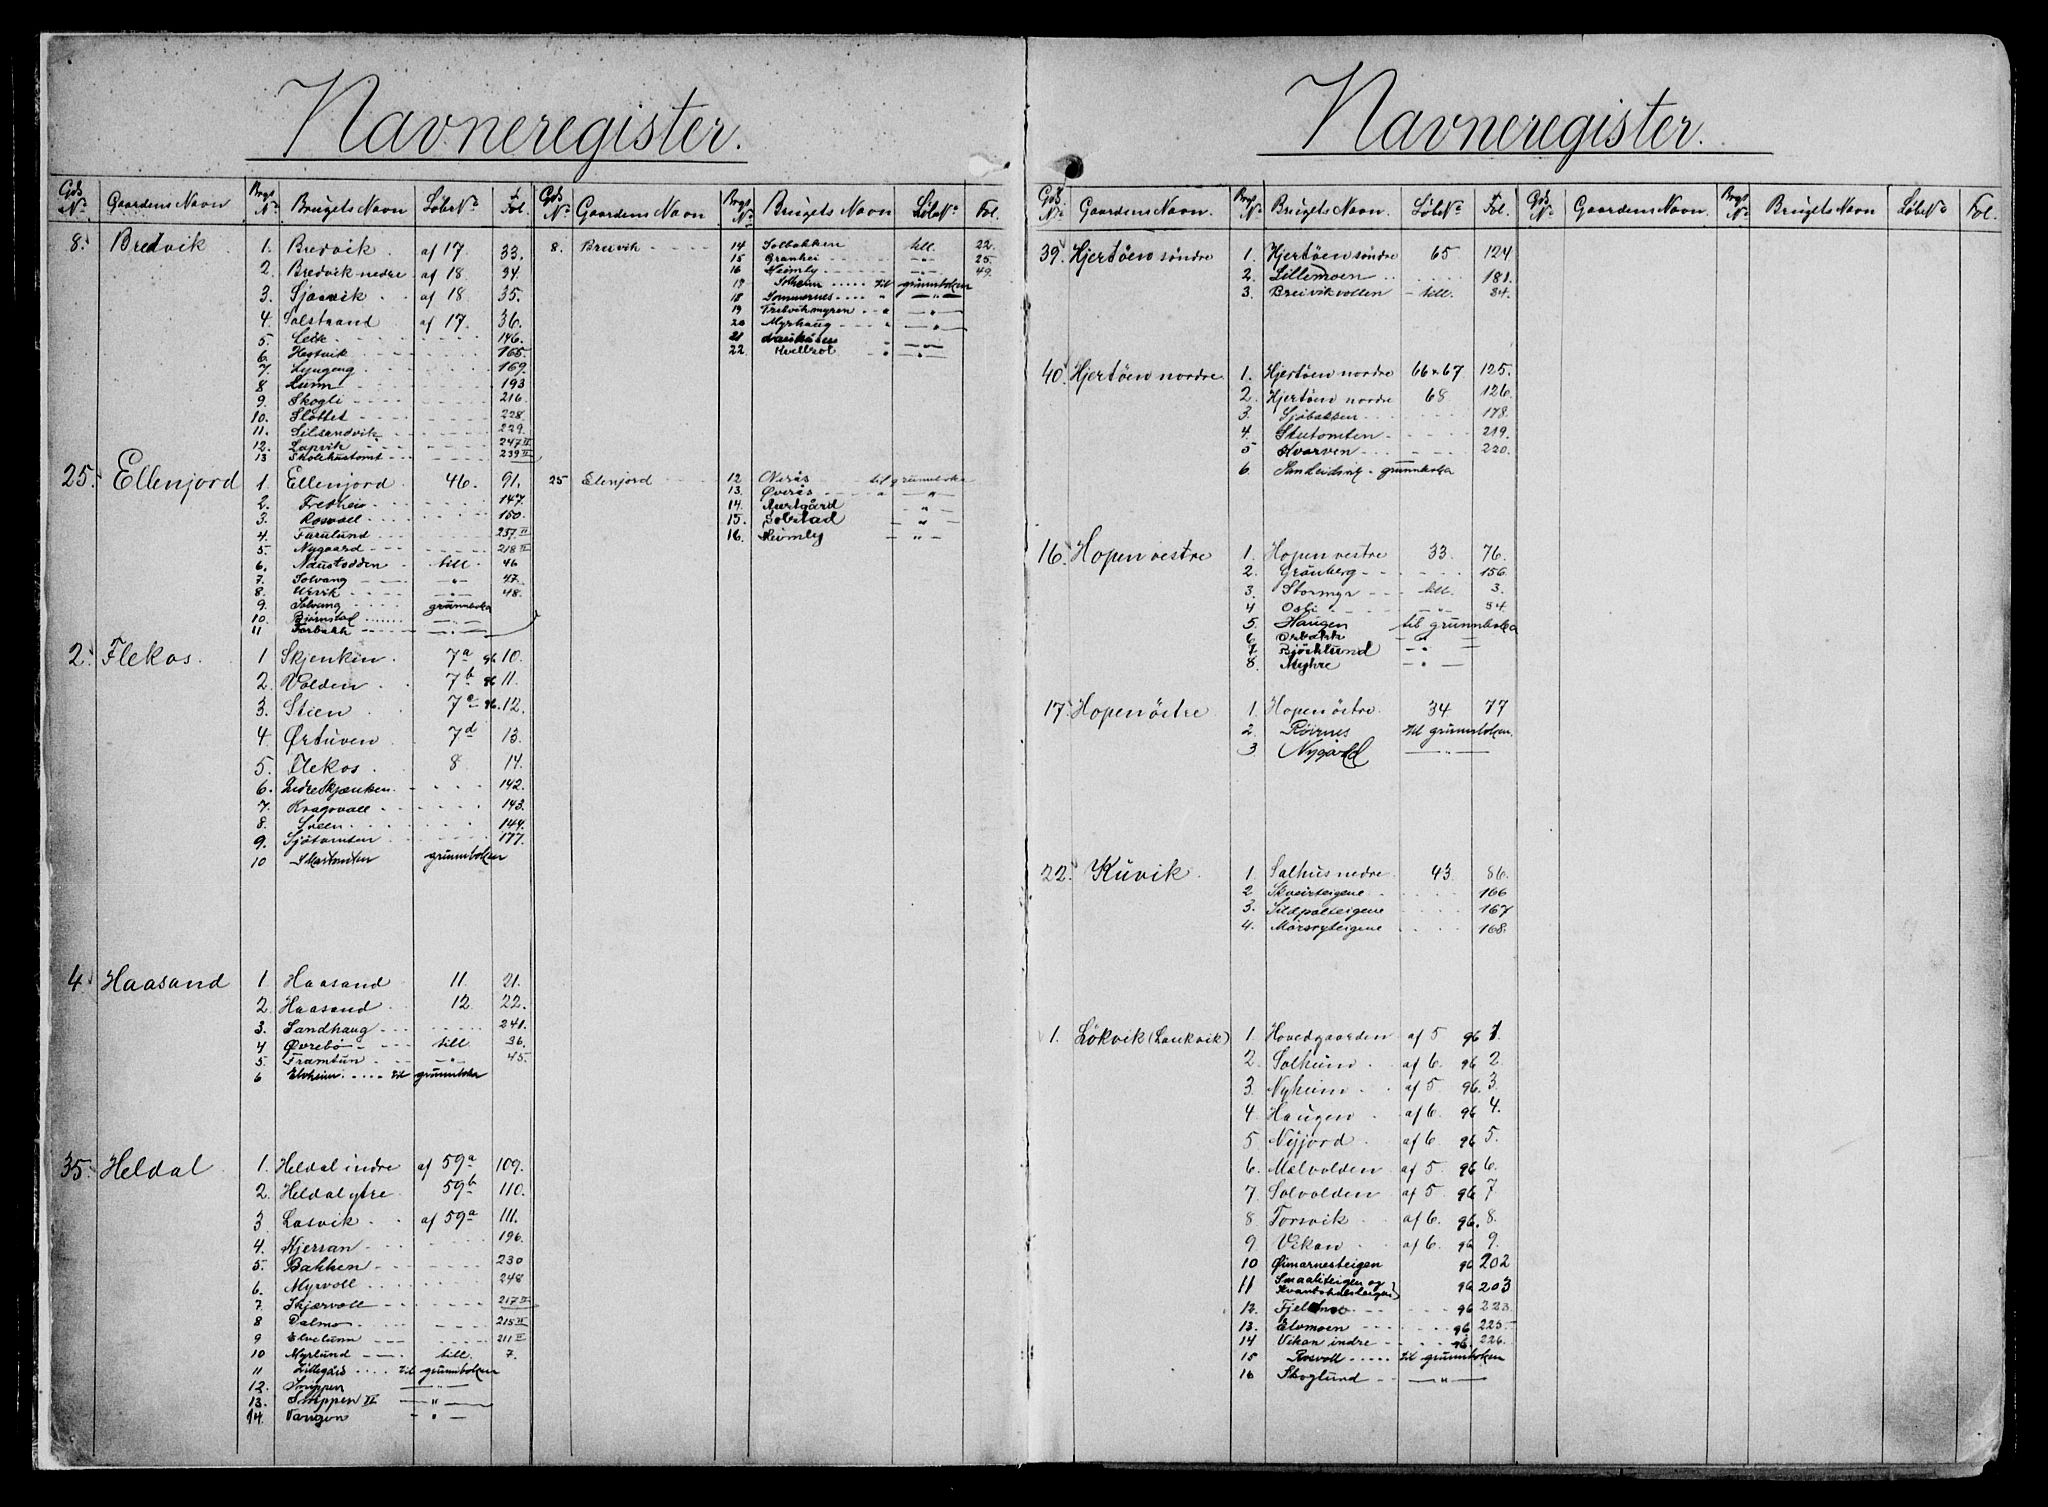 Navneregister.
Gds No. Gaardens Navn Brgs No. Brugets Navn Löbe No. Fol.
8. Bredvik 1. Bredvik af 17. 33.
2. Bredvik nedre af 18. 34.
3. Sjøvik af 18 35.
4. Solstrand af 17. 36.
5. Leik 146.
6. Hestvik 165.
7. Lyngeng 169.
8 Lunn 193
9. Skogli 216
10. Slottet 228
11. Lilsandvik 229.
12. Lapvik 247 II
13 Skolehustomt 239 II
25. Ellenjord 1. Ellenjord 46. 91.
2. Fredheim 147.
3. Rosvoll 150.
4. Furulund 257 II
5. Nygaard 218 II
6. Naustodden till. 46
7. Solvang -"- 47.
8. Urvik -"- 48.
9. Solvang grunnboka
10. Bjørnstad -"-
11 Forbakk -"-
2. Flekos. 1 Skjenkin. 7a 96 10.
2. Volden 7b 96 11.
3. Stien 7c 96. 12.
4. Ørtuven 7d 13.
5. Flekos. 8 14.
6. Indre Skjænken. 142.
7. Kragovoll 143.
8. Sveen 144.
9. Sjøtomten 177.
10 grunnboken
4. Haasand 1. Haasand 11. 21.
2. Haasand 12. 22.
3. Sandhaug 241.
4 Øvrebø till. 36.
5. Framtun -"- 45.
6 Elvheim til grunnboka
35. Heldal 1. Heldal indre af 59a 109.
2. Heldal ytre 59b 110.
3. Lasvik af 59a 111.
4. Kjerran 196.
5. Bakken 230
6. Myrvoll 248
7. Skjærvoll 217 II
8 Dalmo 215 II
9 Elvelunn 211 II
10 Myrlund till. 7.
11 Lillegård til grunnboken
12. Snippen -"-
13. Snippen II -"-
14. Vangen -"-
Gds No. Gaardens Navn Brgs No. Brugets Navn Löbe No. Fol.
8. Breivik 14 Solbakken till. 22.
15 Granhei -"- 25.
16 Heimly -"- 49.
Solheim til grunnboken
18 Sommernes " -"-
19 " -"-
20 Myrhaug " -"-
21 " -"-
22. Kvellsol " -"-
25 Elenjord 12 Nerås til grunnboka
13. Øverås " -"-
14. -"-
15. Solstad -"-
16. Heimly -"-
Navneregister.
Gds No. Gaardens Navn. Brgs No. Brugets Navn. Löbe No. Fol.
39. Hjertöen söndre 1. Hjertöen söndre 65 124
2. Lillemoen 181.
3. Breivikvollen till. 34.
40. Hjertöen nordre 1. Hjertöen nordre 66 & 67 125.
2. Hjertöen nordre 68 126.
3. Sjöbakken 178.
4. Stutomten 219.
5 Kvarven 220.
6. grunnboka
16. Hopen vestre 1. Hopen vestre 33. 76.
2. Grönberg 156.
3. Stormyr till. 3.
4 Osli " 34.
5. Haugen til grunnboka
6 -"-
7. Bjöcklund -"-
8. Myhre -"-
17. Hopen östre 1. Hopen östre. 34 77
2. Röirnes til grunnboken.
3 Nygård -"-
22. Kúvik 1. Salhus nedre 43. 86.
2 Skveirteigene 166
3. Sildpolteigene 167
4. Mörsryteigene 168.
1. Lökvik (Laukvik) 1. Hovedgaarden af 5 96 1.
2. Solheim af 6. 96 2.
3. Nyheim af 5 96. 3.
4. Haugen af 6. 96 4.
5 Nyjord af 6. 96 5.
6. Mælvolden af 5. 96 6.
7. Solvolden af 5 96 7
8 Forsvik af 6. 96. 8.
9. Vikan af 6. 96 9.
10 Ømarnesteigen 96 202
11 Smaaliteigen og
96 203
12. 96 223.
13. Elvmoen 96 225
14 Vikan indre 96 226.
15 Rosvoll til grunnboken
16 Skoglund -"-
Gds No. Gaardens Navn. Brgs No. Brugets Navn Löbe No. Fol.